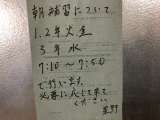 朝補習について
1.2年火金
3年水
7:10～7:50
で行います。
必要に応じて来て
ください
星野